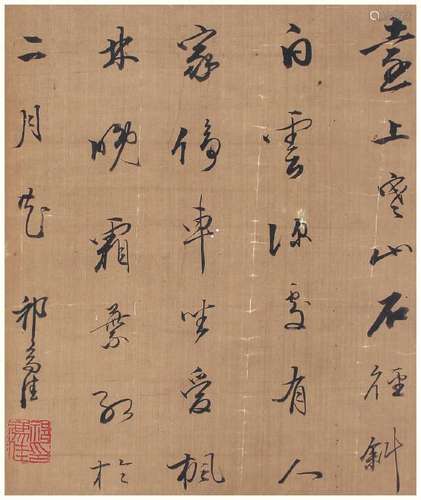 遠上寒山石徑斜
白雲深處有人
家停車坐愛楓
林晚霜葉紅於
二月花 祁豸佳